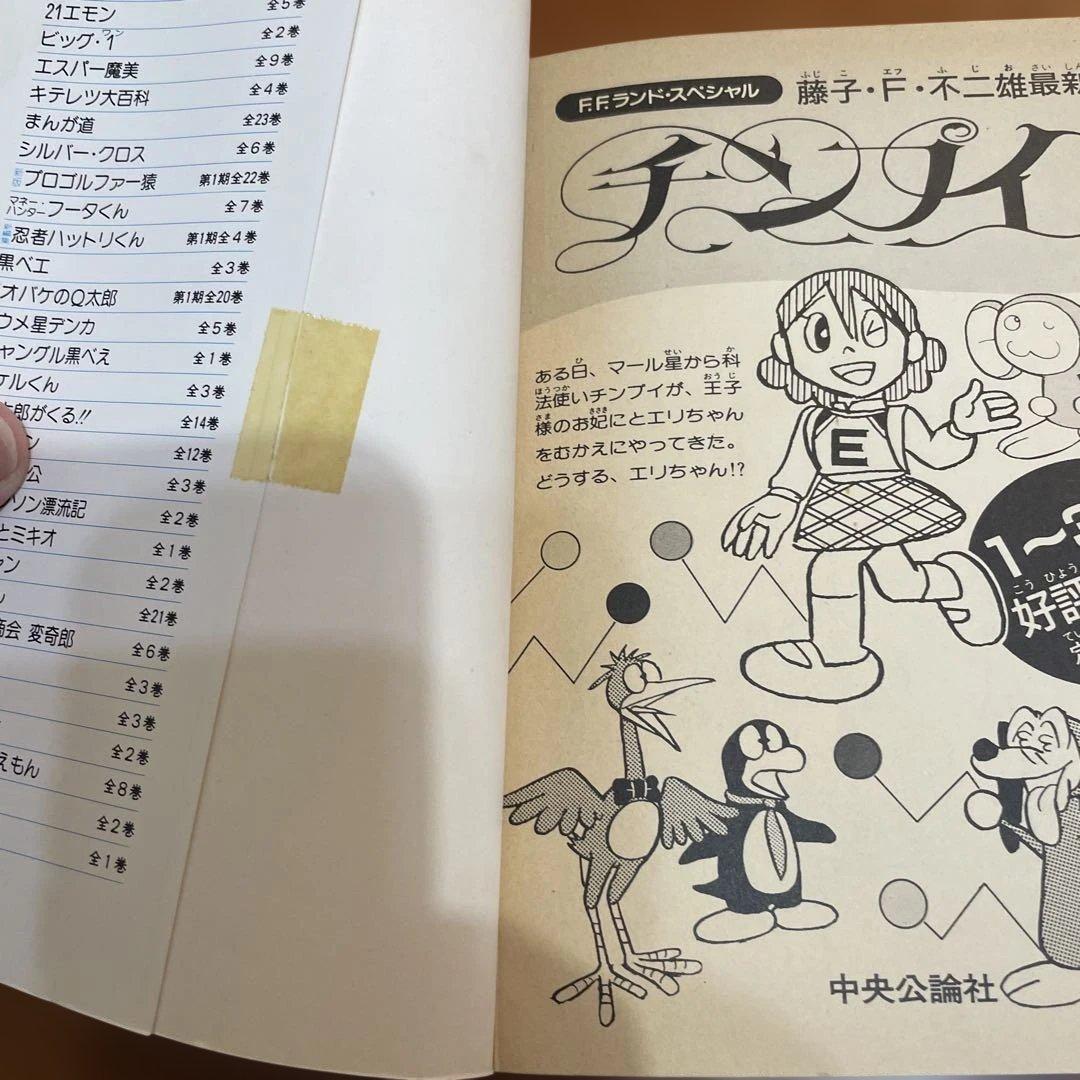 21エモン 全5巻
ビッグ・1 ワン 全2巻
エスパー魔美 全9巻
キテレツ大百科 全4巻
まんが道 全23巻
シルバー・クロス 全6巻
新版 プロゴルファー猿 第1期全22巻
マネー・ハンター フータくん 全7巻
新編集 忍者ハットリくん 第1期全4巻
黒ベエ 全3巻
オバケのQ太郎 第1期全20巻
ウメ星デンカ 全5巻
ャングル黒べえ 全1巻
ケルくん 全3巻
太郎がくる!! 全14巻
ン 全12巻
公 全3巻
ソン漂流記 全2巻
とミキオ 全1巻
ャン 全2巻
全21巻
商会 変奇郎 全6巻
全3巻
全3巻
全2巻
えもん 全8巻
全2巻
全1巻
F.F.ランド・スペシャル
ふじこエフふじおさいしん
藤子・F・不二雄最新
チンプイ
ある日、マール星から科
法使いチンプイが、王子
様のお妃にとエリちゃん
をむかえにやってきた。
どうする、エリちゃん!?
E
1〜3
こうひょう
好評
中央公論社